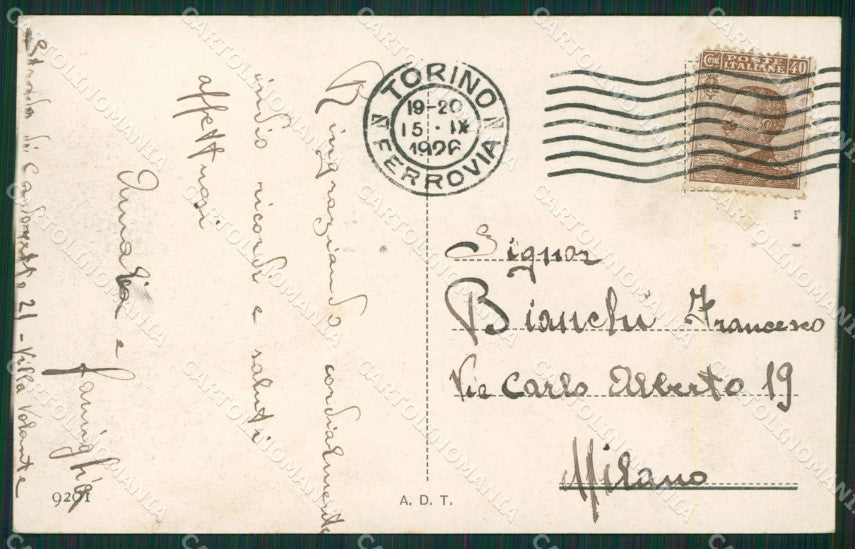 Ringraziando cordialmente
invio ricordi e saluti
affettuosi
Amalia e
famiglia
Strada di 21 - Villa Volante
TORINO
19-20
15 · IX
1926
FERROVIA
Cent POSTE 40
ITALIANE
Signor
Bianchi Francesco
Via Carlo Alberto 19
Milano
9201
A. D. T.
CARTOLINOMANIA